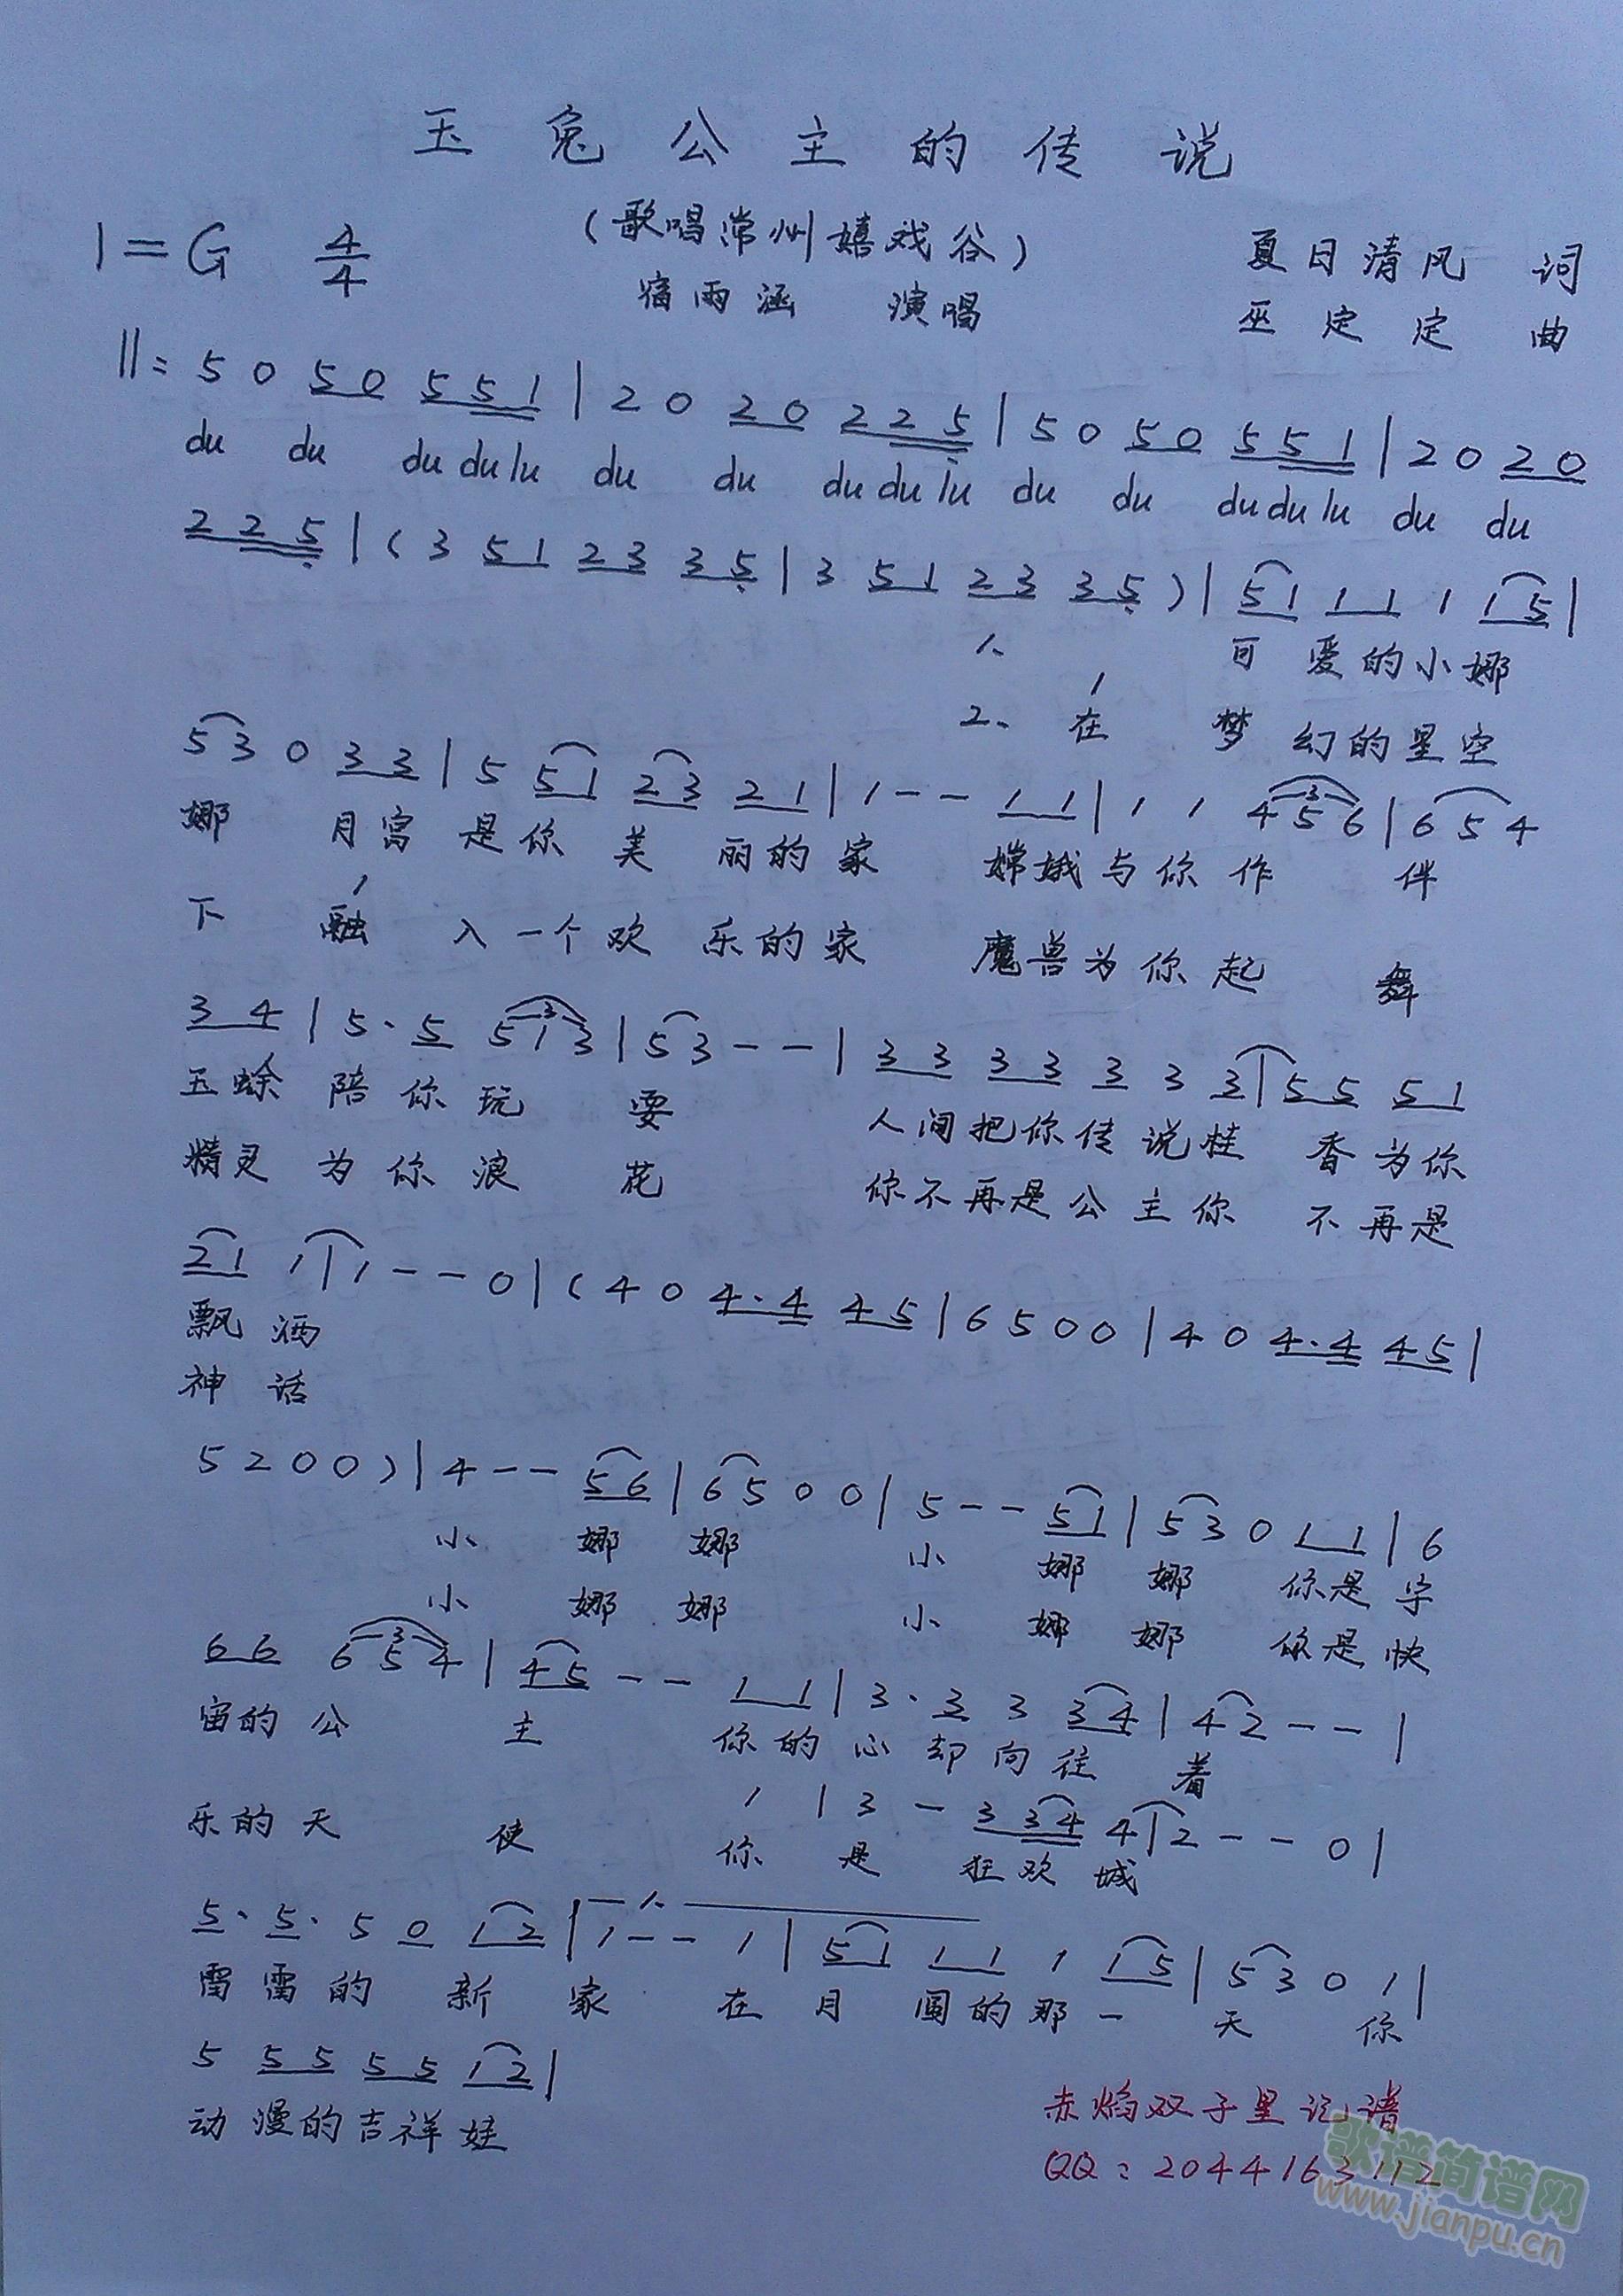 玉兔公主的传说
1=G 4/4 (歌唱常州嬉戏谷) 夏日清风 词
宿雨涵 演唱 巫定定 曲
‖: 5 0 5 0 5 5 1 | 2 0 2 0 2 2 5 | 5 0 5 0 5 5 1 | 2 0 2 0
du du du du lu du du du du lu du du du du lu du du
2 2 5 | ( 3 5 1 2 3 3 5 | 3 5 1 2 3 3 5 ) | 5 1 1 1 1 1 5 |
1、 可爱的小娜
1
2、在梦幻的星空
5 3 0 3 3 | 5 5 1 2 3 2 1 | 1 - - 1 1 | 1 1 4 5 6 | 6 5 4
娜 月宫是你美丽的家 嫦娥与你作伴
1
下 融入一个欢乐的家 魔兽为你起舞
3 4 | 5 · 5 5 1 3 | 5 3 - - | 3 3 3 3 3 3 3 | 5 5 5 1
玉蜍陪你玩耍 人间把你传说桂香为你
精灵为你浪花 你不再是公主你不再是
2 1 1 | 1 - - 0 | ( 4 0 4 · 4 4 5 | 6 5 0 0 | 4 0 4 · 4 4 5 |
飘洒
神话
5 2 0 0 ) | 4 - - 5 6 | 6 5 0 0 | 5 - - 5 1 | 5 3 0 1 1 | 6
小娜娜 小娜娜 你是宇
小娜娜 小娜娜 你是快
6 6 6 5 4 | 4 5 - - 1 1 | 3 · 3 3 3 4 | 4 2 - - |
宙的公主 你的心却向往着
1 | 3 - 3 3 4 4 | 2 - - 0 |
乐的天使 你是狂欢城
5 · 5 · 5 0 1 2 | 1 - - 1 | 5 1 1 1 1 1 5 | 5 3 0 1 |
雷雷的新家 在月圆的那一天 你
5 5 5 5 5 1 2 |
动漫的吉祥娃
赤焰双子星记谱
QQ：2044163112
歌谱简谱网
www.jianpu.cn